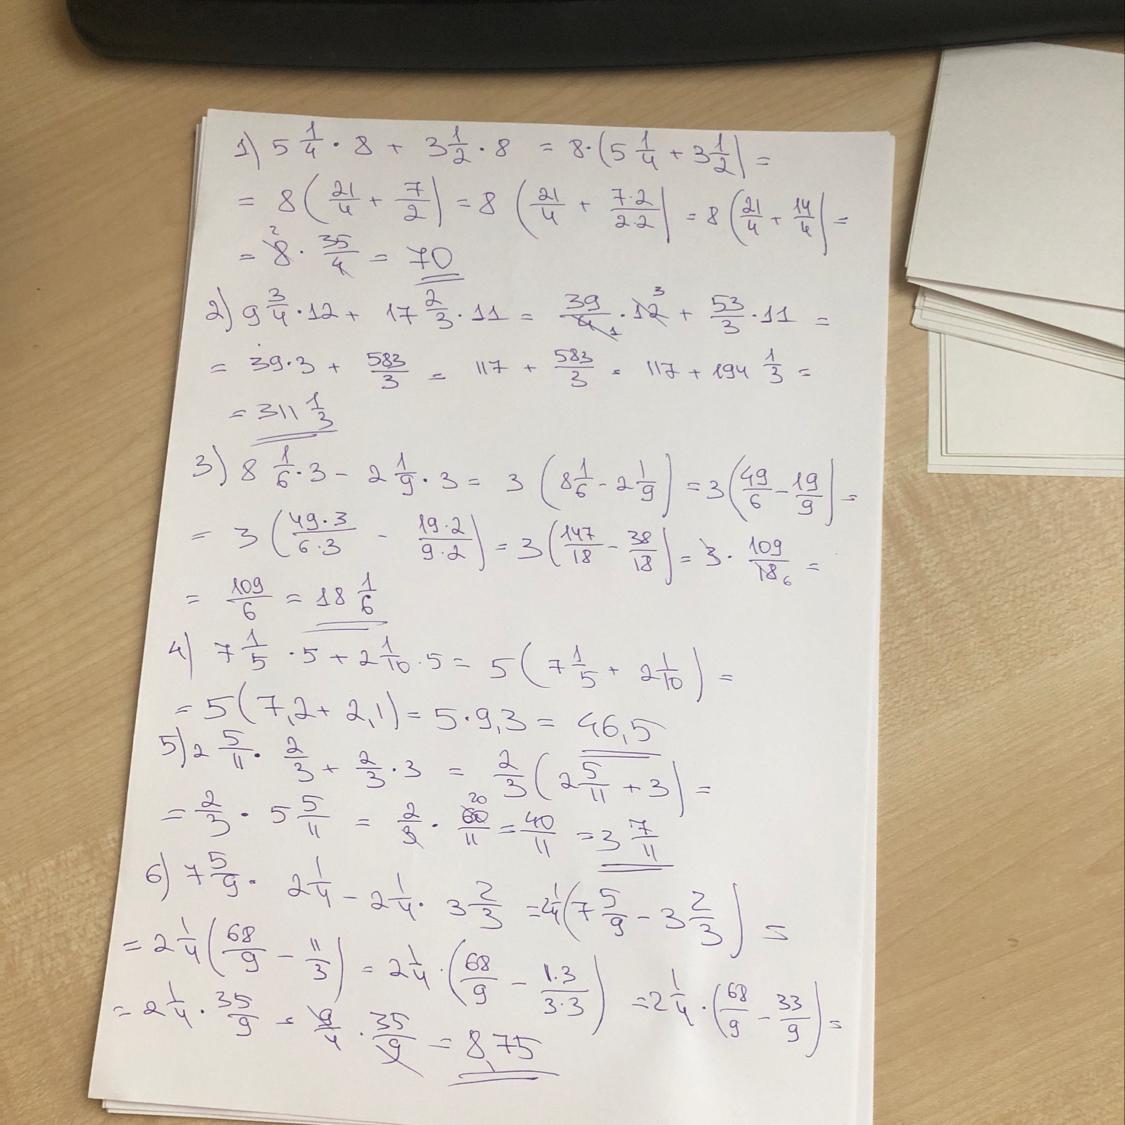 1) 5 1/4 · 8 + 3 1/2 · 8 = 8·(5 1/4 + 3 1/2) =
= 8 (21/4 + 7/2) = 8 (21/4 + 7·2/2·2) = 8 (21/4 + 14/4) =
= 8 2 · 35/4 = 70
2) 9 3/4 · 12 + 17 2/3 · 11 = 39/4 1 · 12 3 + 53/3 · 11 =
= 39·3 + 583/3 = 117 + 583/3 = 117 + 194 1/3 =
= 311 1/3
3) 8 1/6 · 3 - 2 1/9 · 3 = 3 (8 1/6 - 2 1/9) = 3 (49/6 - 19/9) =
= 3 (49·3/6·3 - 19·2/9·2) = 3 (147/18 - 38/18) = 3 · 109/18 6 =
= 109/6 = 18 1/6
4) 7 1/5 · 5 + 2 1/10 · 5 = 5 (7 1/5 + 2 1/10) =
= 5 (7,2 + 2,1) = 5 · 9,3 = 46,5
5) 2 5/11 · 2/3 + 2/3 · 3 = 2/3 (2 5/11 + 3) =
= 2/3 · 5 5/11 = 2/3 · 60 20/11 = 40/11 = 3 7/11
6) 7 5/9 · 2 1/4 - 2 1/4 · 3 2/3 = 2 1/4 (7 5/9 - 3 2/3) =
= 2 1/4 (68/9 - 11/3) = 2 1/4 · (68/9 - 11·3/3·3) = 2 1/4 · (68/9 - 33/9) =
= 2 1/4 · 35/9 = 9/4 · 35/9 = 8,75